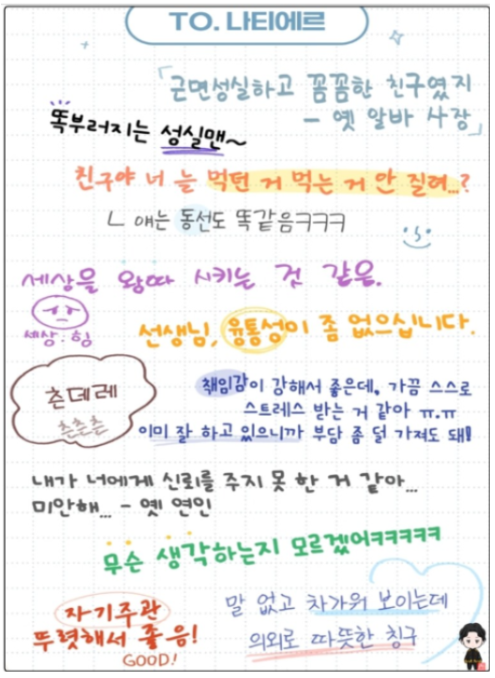 TO. 나티에르
「근면성실하고 꼼꼼한 친구였지
- 옛 알바 사장」
똑부러지는 성실맨~
친구야 너 늘 먹던 거 먹는 거 안 질려...?
ㄴ 얘는 동선도 똑같음ㅋㅋㅋ
세상을 왕따 시키는 것 같음.
세상: 힝
선생님, 융통성이 좀 없으십니다.
츤데레
츤츤츤
책임감이 강해서 좋은데, 가끔 스스로
스트레스 받는 거 같아 ㅠ.ㅠ
이미 잘 하고 있으니까 부담 좀 덜 가져도 돼!
내가 너에게 신뢰를 주지 못 한 거 같아...
미안해... - 옛 연인
무슨 생각하는지 모르겠어ㅋㅋㅋㅋㅋ
자기주관
뚜렷해서 좋음!
GOOD!
말 없고 차가워 보이는데
의외로 따뜻한 칭구